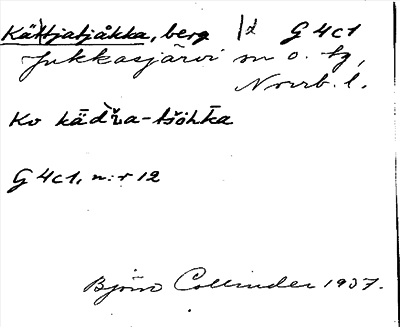 Kättjatjåkka, berg ld G 4c1
Jukkasjärvi sn o. tg,
Norrb. l.
Kv käd̄ža-tšohka
G 4c1, n:r 12
Björn Collinder 1937.